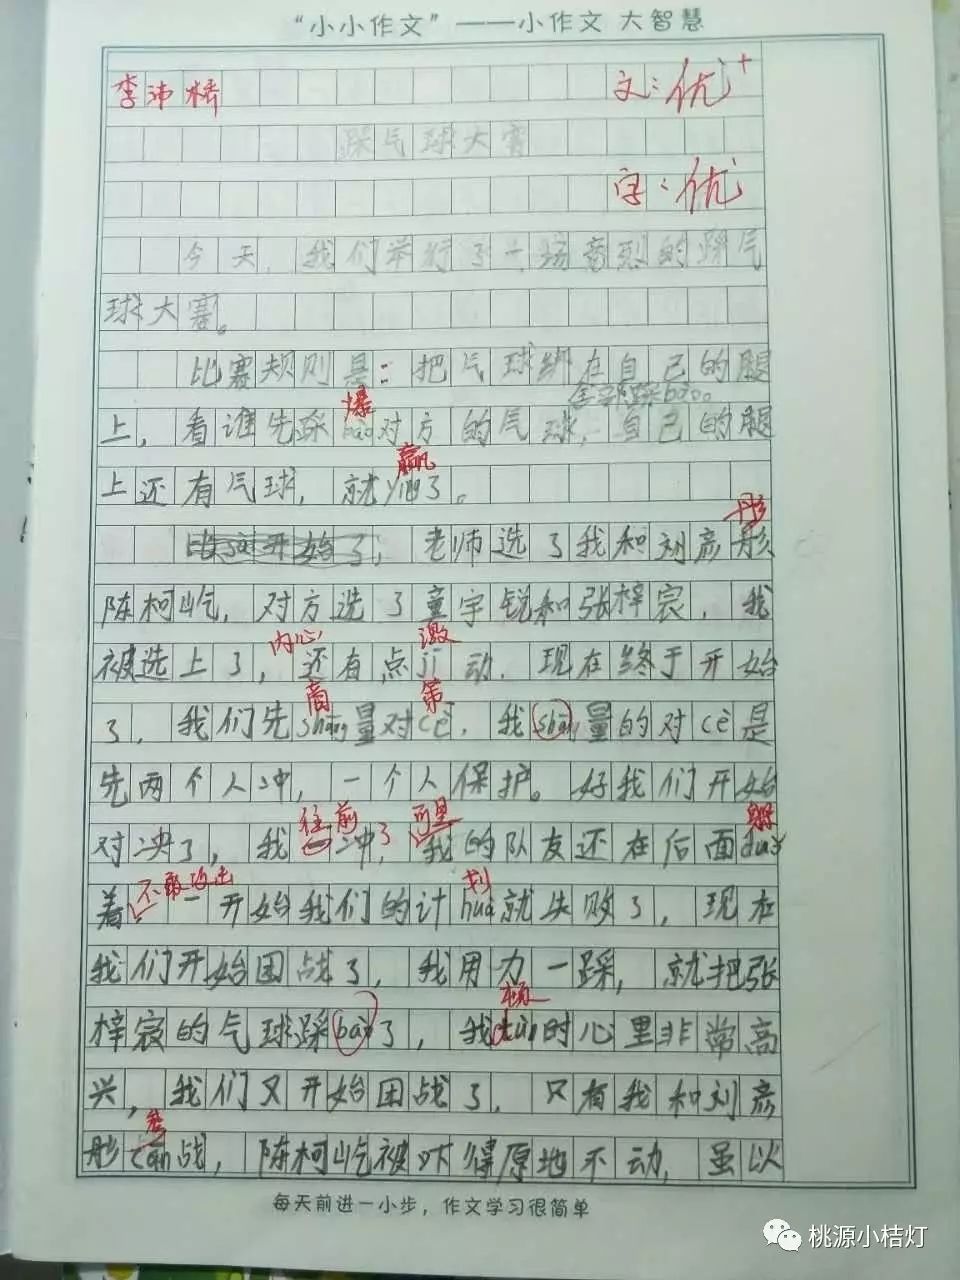 “小小作文”——小作文 大智慧
李沛桥 文：优+
踩气球大赛
字：优
今天，我们举行了一场的踩气
球大赛。
比赛规则是：把气球绑在自己的腿
全部踩bào。
爆
上，看谁先踩bào对方的气球，自己的腿
赢
上还有气球，就yíng了。
彤
比sài开始了，老师选了我和刘彦彤
陈柯屹，对方选了童宇锐和张梓宸，我
内心 激
被选上了，还有点jī动，现在终于开始
商 策
了，我们先shāng量对cè，我shāng量的对cè是
先两个人冲，一个人保护。好我们开始
往前 了 可是 躲
对决了，我冲，我的队友还在后面duǒ
不敢攻击 划
着，一开始我们的计huà就失败了，现在
我们开始团战了，我用力一踩，就把张
顿
梓宸的气球踩bào了，我dùn时心里非常高
兴，我们又开始团战了，只有我和刘彦
参
彤cān战，陈柯屹被吓得原地不动，虽以
每天前进一小步，作文学习很简单
桃源小桔灯